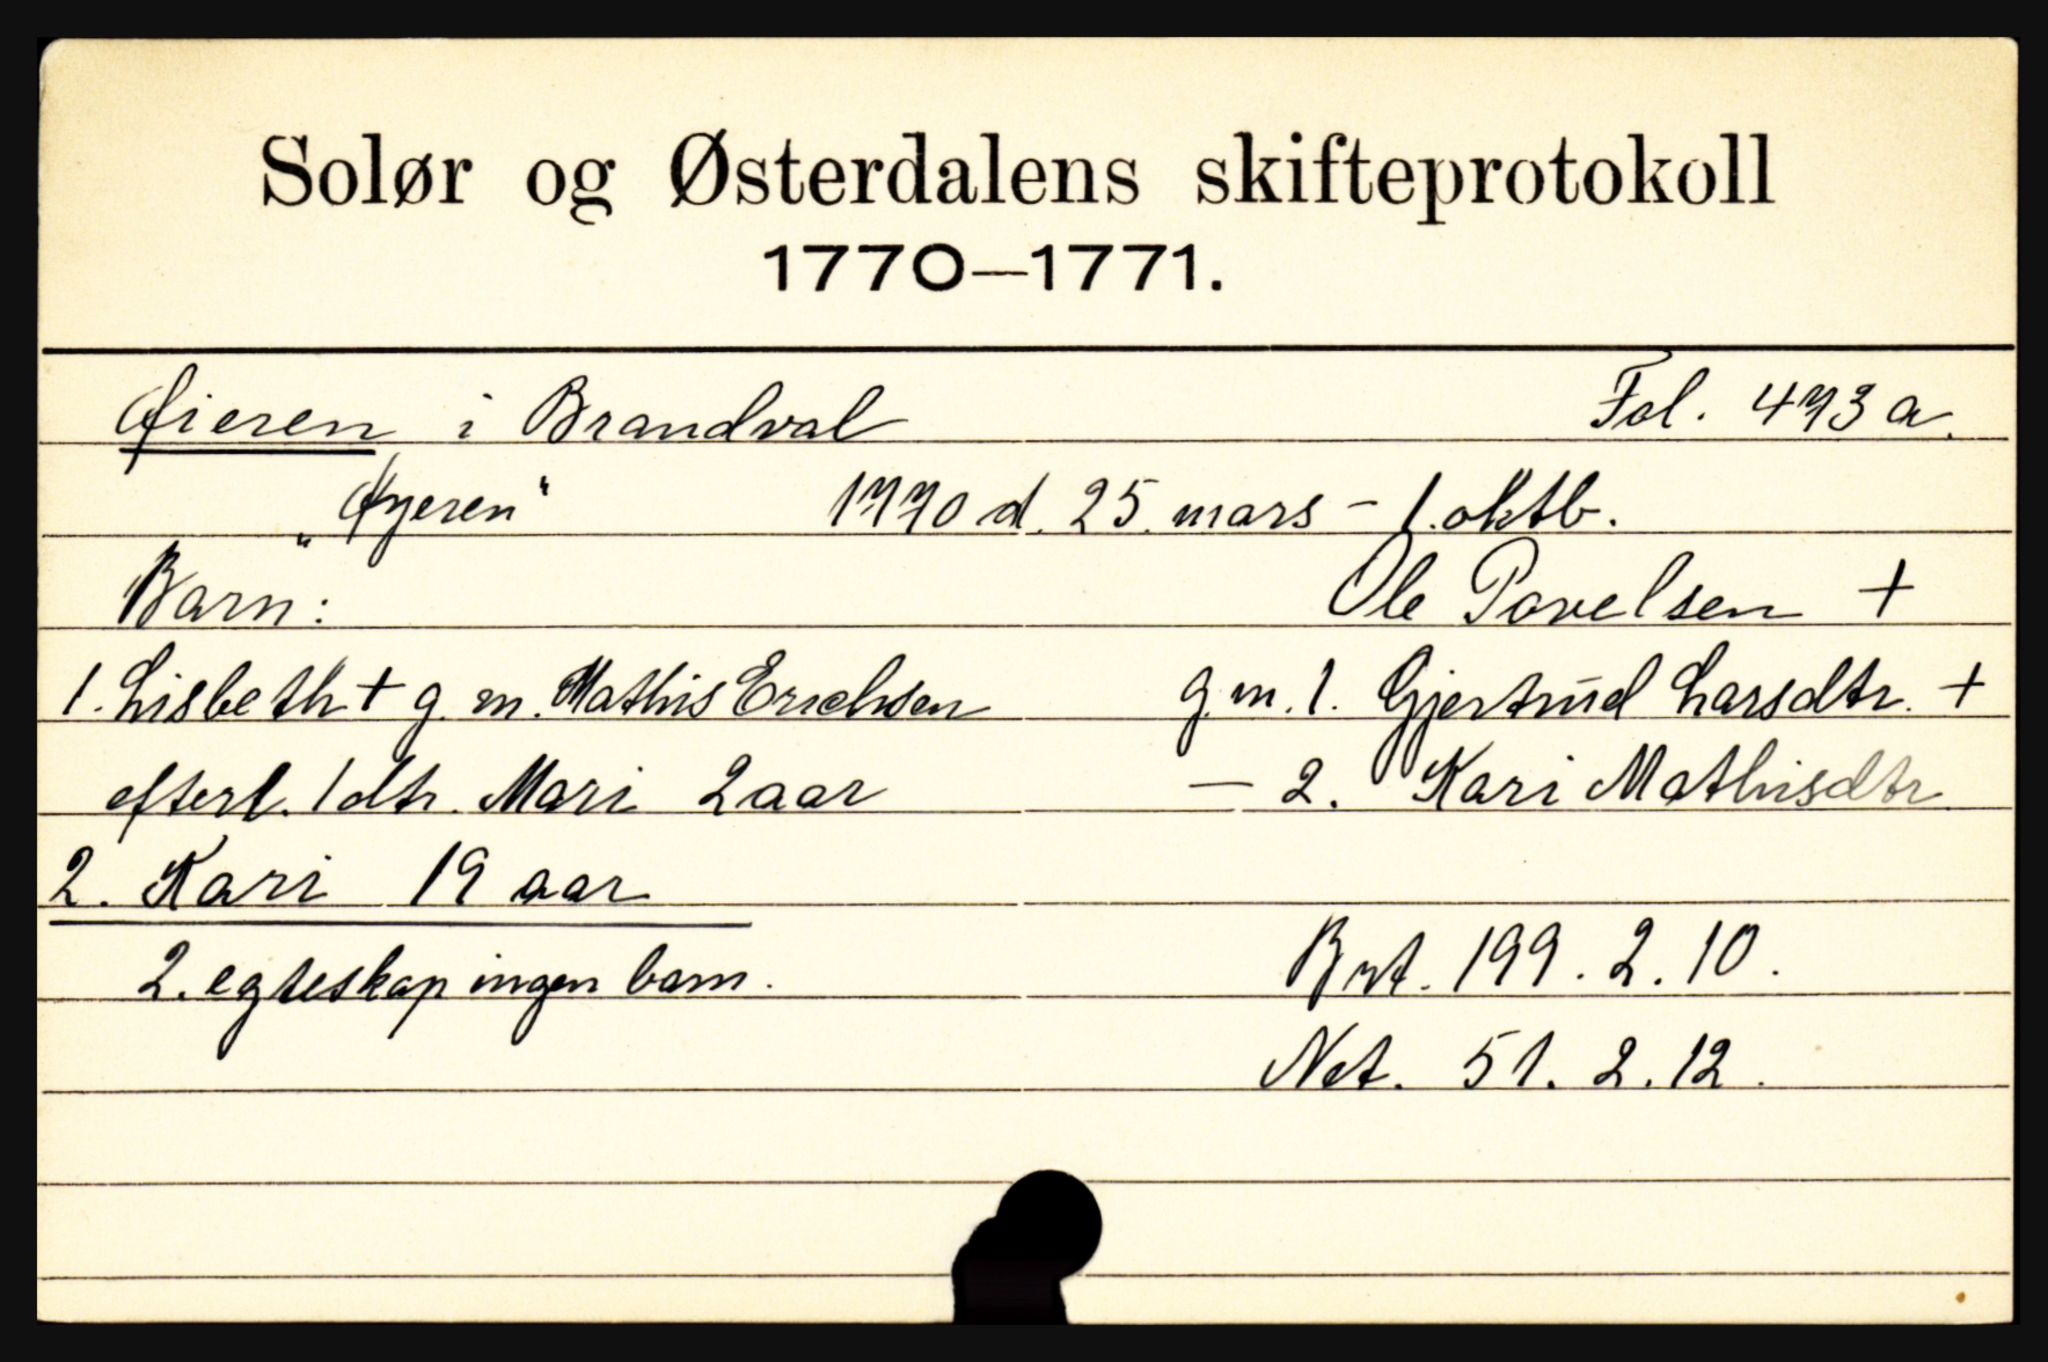 Solør og Østerdalens skifteprotokoll
1770—1771.
Øieren i Brandval Fol. 473 a.
„Øyeren“ 1770 d. 25. mars - 1. oktb.
Barn: Ole Povelsen +
1. Lisbeth + g. m. Mathis Erichsen g. m. 1. Gjertrud Larsdtr. +
efterl. 1 dtr. Mari 2 aar — 2. Kari Mathisdtr.
2. Kari 19 aar
2. egteskap ingen barn. Brt. 199. 2. 10.
Net. 51. 2. 12.